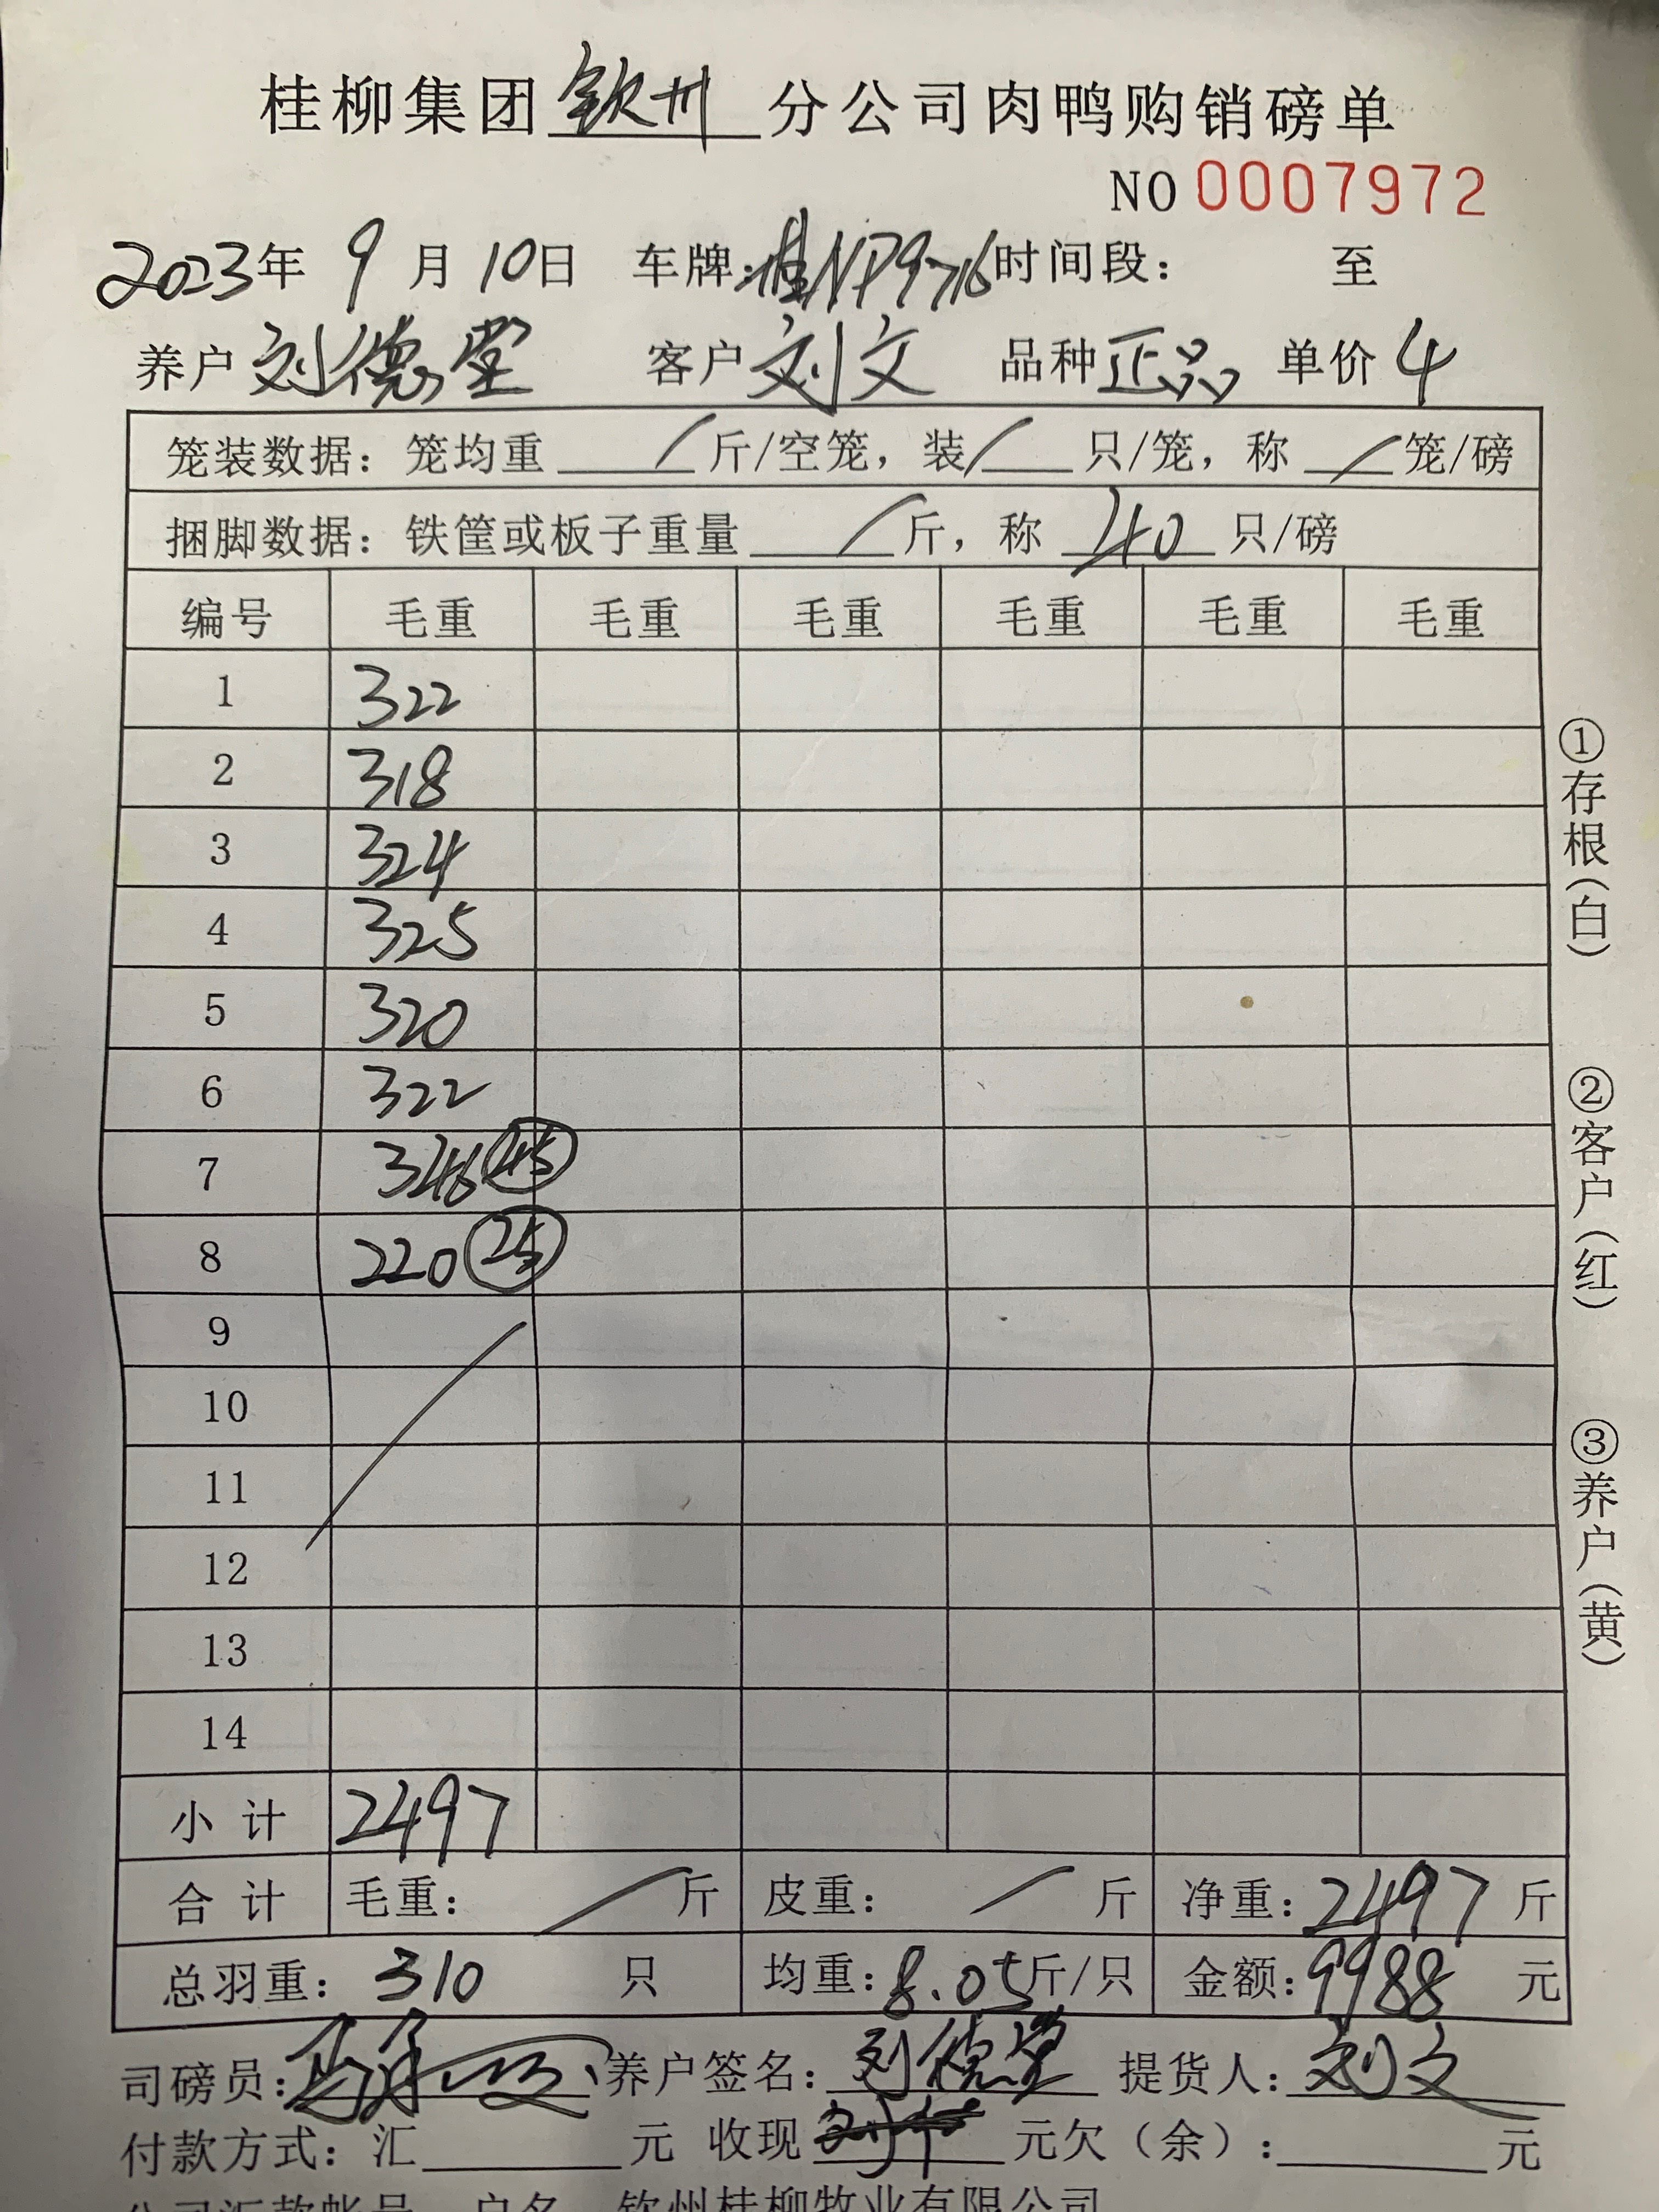 桂柳集团钦州分公司肉鸭购销磅单
NO 0007972
2023年 9月 10日 车牌:桂NP9716 时间段: 至
养户 刘德堂 客户 刘文 品种 正品 单价 4
笼装数据: 笼均重 / 斤/空笼, 装 / 只/笼, 称 / 笼/磅
捆脚数据: 铁筐或板子重量 / 斤, 称 40 只/磅
编号 毛重 毛重 毛重 毛重 毛重 毛重
1 322
2 318
3 324
4 325
5 320
6 322
7 346 45
8 220 25
9
10
11
12
13
14
小计 2497
合计 毛重: / 斤 皮重: / 斤 净重: 2497 斤
总羽重: 310 只 均重: 8.05 斤/只 金额: 9988 元
司磅员: 养户签名: 刘德堂 提货人: 刘文
付款方式: 汇 元 收现 元欠(余): 元
公司汇款帐号 户名 钦州桂柳牧业有限公司
①存根(白)
②客户(红)
③养户(黄)